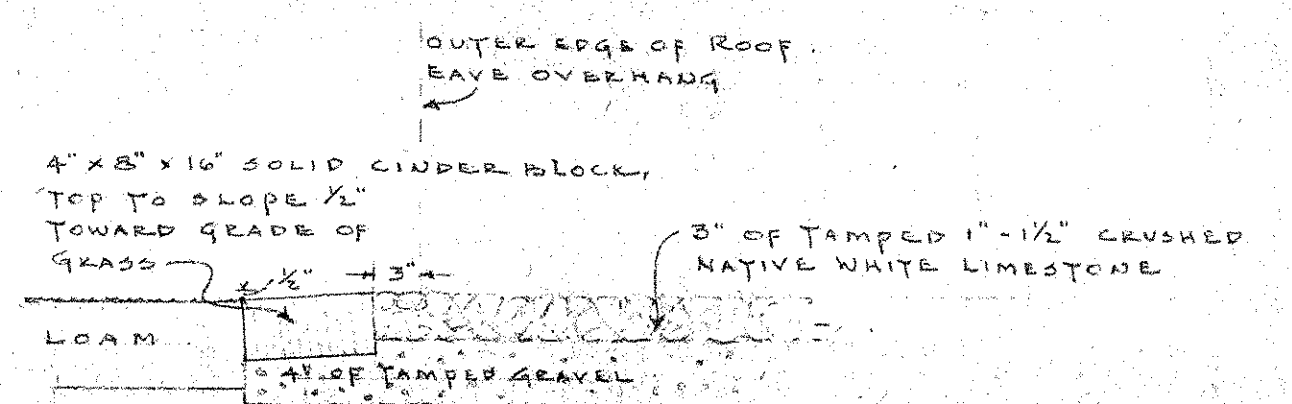 OUTER EDGE OF ROOF
EAVE OVERHANG
4" x 8" x 16" SOLID CINDER BLOCK,
TOP TO SLOPE 1/2"
TOWARD GRADE OF
GRASS
1/2"
3"
3" OF TAMPED 1" - 1 1/2" CRUSHED
NATIVE WHITE LIMESTONE
LOAM
4" OF TAMPED GRAVEL